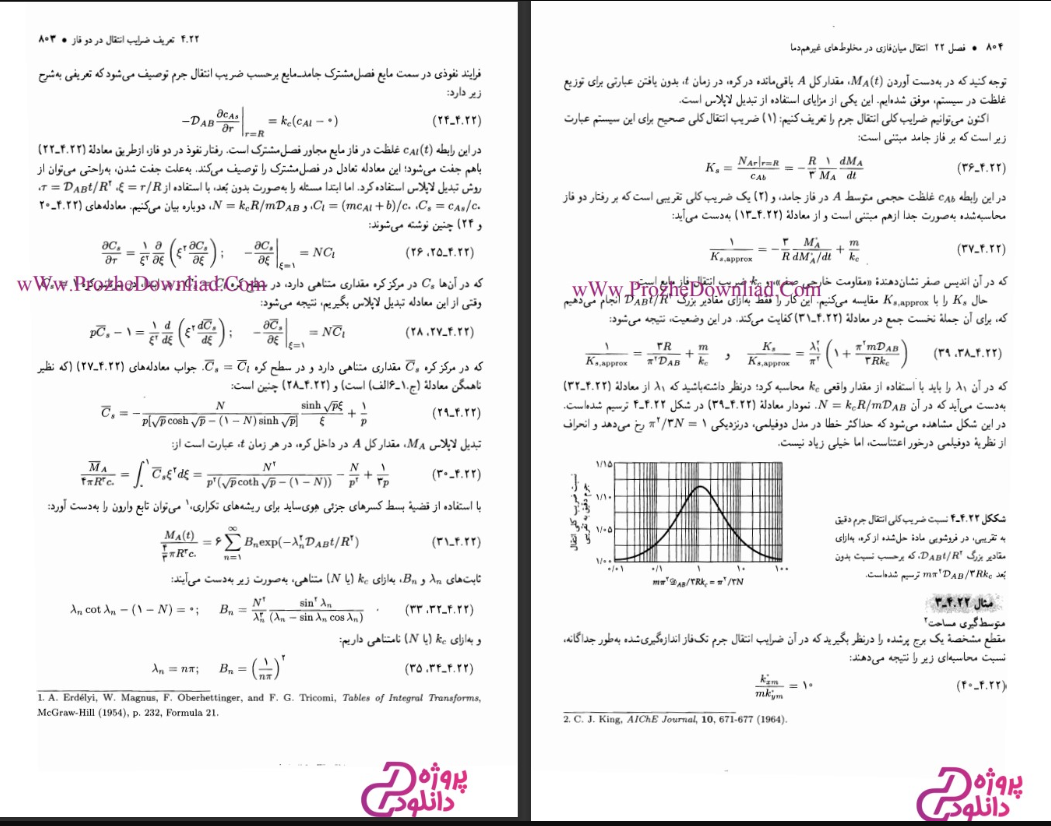 ۴.۲۲ تعریف ضرایب انتقال در دو فاز ● ۸۰۳
فرایند نفوذی در سمت مایع فصل‌مشترک جامد-مایع برحسب ضریب انتقال جرم توصیف می‌شود که تعریفی به‌شرح
زیر دارد:
−𝒟_AB ∂c_As/∂r |_{r=R} = k_c(c_Al − ۰) (۲۴-۴.۲۲)
در این رابطه c_Al(t) غلظت در فاز مایع مجاور فصل‌مشترک است. رفتار نفوذ در دو فاز، ازطریق معادلهٔ (۲۲-۴.۲۲)
باهم جفت می‌شود؛ این معادله تعادل در فصل‌مشترک را توصیف می‌کند. به‌علت جفت شدن، به‌راحتی می‌توان از
روش تبدیل لاپلاس استفاده کرد. اما ابتدا مسئله را به‌صورت بدون بُعد، با استفاده از ξ = r/R، τ = 𝒟_AB t/R^۲،
C_s = c_As/c₀، C_l = (mc_Al + b)/c₀، و N = k_cR/m𝒟_AB، دوباره بیان می‌کنیم. معادله‌های (۲۰-۴.۲۲
و ۲۴) چنین نوشته می‌شوند:
∂C_s/∂τ = (۱/ξ^۲) ∂/∂ξ (ξ^۲ ∂C_s/∂ξ); −∂C_s/∂ξ |_{ξ=۱} = NC_l (۲۶،۲۵-۴.۲۲)
وقتی از این معادله تبدیل لاپلاس بگیریم، نتیجه می‌شود:
pC̅_s − ۱ = (۱/ξ^۲) d/dξ (ξ^۲ dC̅_s/dξ); −∂C̅_s/∂ξ |_{ξ=۱} = NC̅_l (۲۸،۲۷-۴.۲۲)
که در مرکز کره C̅_s مقداری متناهی دارد و در سطح کره C̅_s = C̅_l. جواب معادله‌های (۲۷-۴.۲۲) (که نظیر
ناهمگن معادلهٔ (ج.۱-۶الف) است) و (۲۸-۴.۲۲) چنین است:
C̅_s = −N/(p[√p cosh √p − (۱ − N) sinh √p]) · sinh √pξ/ξ + ۱/p (۲۹-۴.۲۲)
تبدیل لاپلاس M_A، مقدار کل A در داخل کره، در هر زمان t، عبارت است از:
M̅_A/(۴πR^۳c₀) = ∫₀^۱ C̅_sξ^۲dξ = −N^۲/(p^۲(√p coth √p − (۱ − N))) − N/p^۲ + ۱/۳p (۳۰-۴.۲۲)
با استفاده از قضیهٔ بسط کسرهای جزئی هِوی‌ساید برای ریشه‌های تکراری،^۱ می‌توان تابع وارون را به‌دست آورد:
M_A(t)/((۴/۳)πR^۳c₀) = ۶ Σ_{n=۱}^∞ B_n exp(−λ_n^۲𝒟_AB t/R^۲) (۳۱-۴.۲۲)
ثابت‌های λ_n و B_n، به‌ازای k_c (یا N) متناهی، به‌صورت زیر به‌دست می‌آیند:
λ_n cot λ_n − (۱ − N) = ۰; B_n = (N^۲/λ_n^۴) sin^۲ λ_n/(λ_n − sin λ_n cos λ_n) (۳۳،۳۲-۴.۲۲)
و به‌ازای k_c (یا N) نامتناهی داریم:
λ_n = nπ; B_n = (۱/nπ)^۲ (۳۵،۳۴-۴.۲۲)
1. A. Erdélyi, W. Magnus, F. Oberhettinger, and F. G. Tricomi, Tables of Integral Transforms,
McGraw-Hill (1954), p. 232, Formula 21.
پروژه
دانلود
۸۰۴ ● فصل ۲۲ انتقال میان‌فازی در مخلوط‌های غیرهم‌دما
توجه کنید که در به‌دست آوردن M_A(t)، مقدار کل A باقی‌مانده در کره، در زمان t، بدون یافتن عبارتی برای توزیع
غلظت در سیستم، موفق شده‌ایم. این یکی از مزایای استفاده از تبدیل لاپلاس است.
اکنون می‌توانیم ضرایب کلی انتقال جرم را تعریف کنیم: (۱) ضریب انتقال کلی صحیح برای این سیستم عبارت
زیر است که بر فاز جامد مبتنی است:
K_s = N_Ar|_{r=R}/c_Ab = −(R/۳)(۱/M_A)(dM_A/dt) (۳۶-۴.۲۲)
در این رابطه c_Ab غلظت حجمی متوسط A در فاز جامد، و (۲) یک ضریب کلی تقریبی است که بر رفتار دو فاز
محاسبه‌شده به‌صورت جدا ازهم مبتنی است و از معادلهٔ (۱۳-۴.۲۲) به‌دست می‌آید:
۱/K_s,approx = −(۳/R) M_A°/(dM_A°/dt) + m/k_c (۳۷-۴.۲۲)
که در آن اندیس صفر نشان‌دهندهٔ «مقاومت خارجی صفر» و k_c ضریب انتقال فاز مایع است.
حال K_s را با K_s,approx مقایسه می‌کنیم. این کار را فقط به‌ازای مقادیر بزرگ 𝒟_AB t/R^۲ انجام می‌دهیم
که، برای آن جملهٔ نخست جمع در معادلهٔ (۳۱-۴.۲۲) کفایت می‌کند. در این وضعیت، نتیجه می‌شود:
۱/K_s,approx = ۳R/π^۲𝒟_AB + m/k_c و K_s/K_s,approx = (λ_۱^۲/π^۲)(۱ + π^۲m𝒟_AB/۳Rk_c) (۳۹،۳۸-۴.۲۲)
که در آن λ_۱ را باید با استفاده از مقدار واقعی k_c محاسبه کرد؛ درنظر داشته‌باشید که λ_۱ از معادلهٔ (۳۲-۴.۲۲)
به‌دست می‌آید که در آن N = k_cR/m𝒟_AB. نمودار معادلهٔ (۳۹-۴.۲۲) در شکل ۴.۲۲-۴ ترسیم شده‌است.
در این شکل مشاهده می‌شود که حداکثر خطا در مدل دوفیلمی، درنزدیکی π^۲/۳N = ۱ رخ می‌دهد و انحراف
از نظریهٔ دوفیلمی درخور اعتناست، اما خیلی زیاد نیست.
نسبت ضریب کلی انتقال
جرم دقیق به تقریبی
۱/۱۵
۱/۱۰
۱/۰۵
۱/۰۰
۰/۰۱ ۰/۱ ۱ ۱۰ ۱۰۰
mπ^۲𝒟_AB/۳Rk_c = π^۲/۳N
شکل ۴.۲۲-۴ نسبت ضریب کلی انتقال جرم دقیق
به تقریبی، در فروشویی مادهٔ حل‌شده از کره، به‌ازای
مقادیر بزرگ 𝒟_AB t/R^۲، که برحسب نسبت بدون
بُعد mπ^۲𝒟_AB/۳Rk_c ترسیم شده‌است.
مثال ۴.۲۲-۳
متوسط‌گیری مساحت^۲
مقطع مشخصهٔ یک برج پرشده را درنظر بگیرید که در آن ضرایب انتقال جرم تک‌فاز اندازه‌گیری‌شده به‌طور جداگانه،
نسبت محاسبه‌ای زیر را نتیجه می‌دهند:
k°_xm/mk°_ym = ۱۰ (۴۰-۴.۲۲)
2. C. J. King, AIChE Journal, 10, 671-677 (1964).
www.ProzheDownload.Com
www.ProzheDownload.Com
پروژه
دانلود